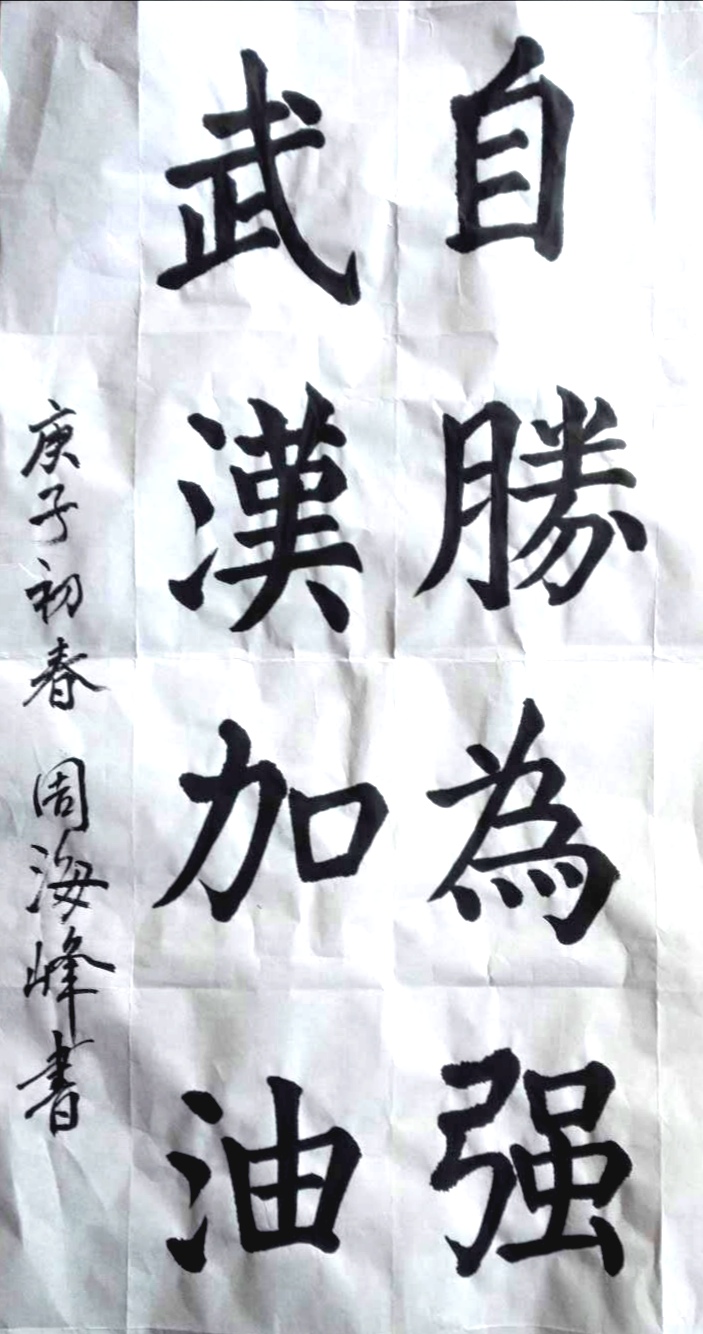 自勝為强
武漢加油
庚子初春 周海峰書